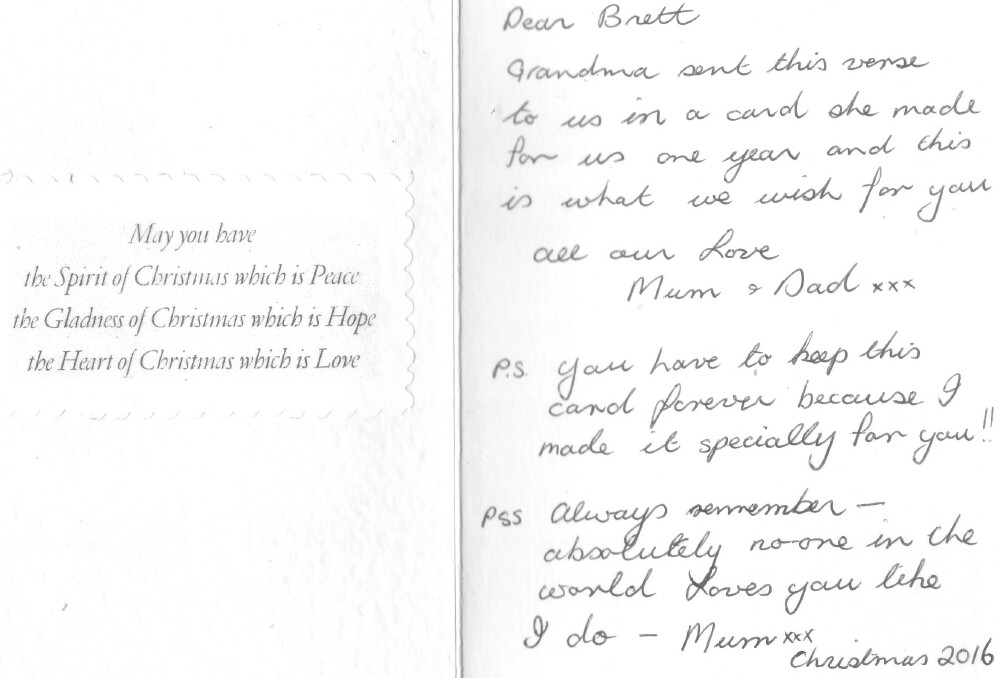 May you have
the Spirit of Christmas which is Peace
the Gladness of Christmas which is Hope
the Heart of Christmas which is Love
Dear Brett
Grandma sent this verse
to us in a card she made
for us one year and this
is what we wish for you
all our Love
Mum & Dad xxx
P.S. You have to keep this
card forever because I
made it specially for you!!
PSS Always remember —
absolutely no-one in the
world Loves you like
I do — Mum xxx
Christmas 2016